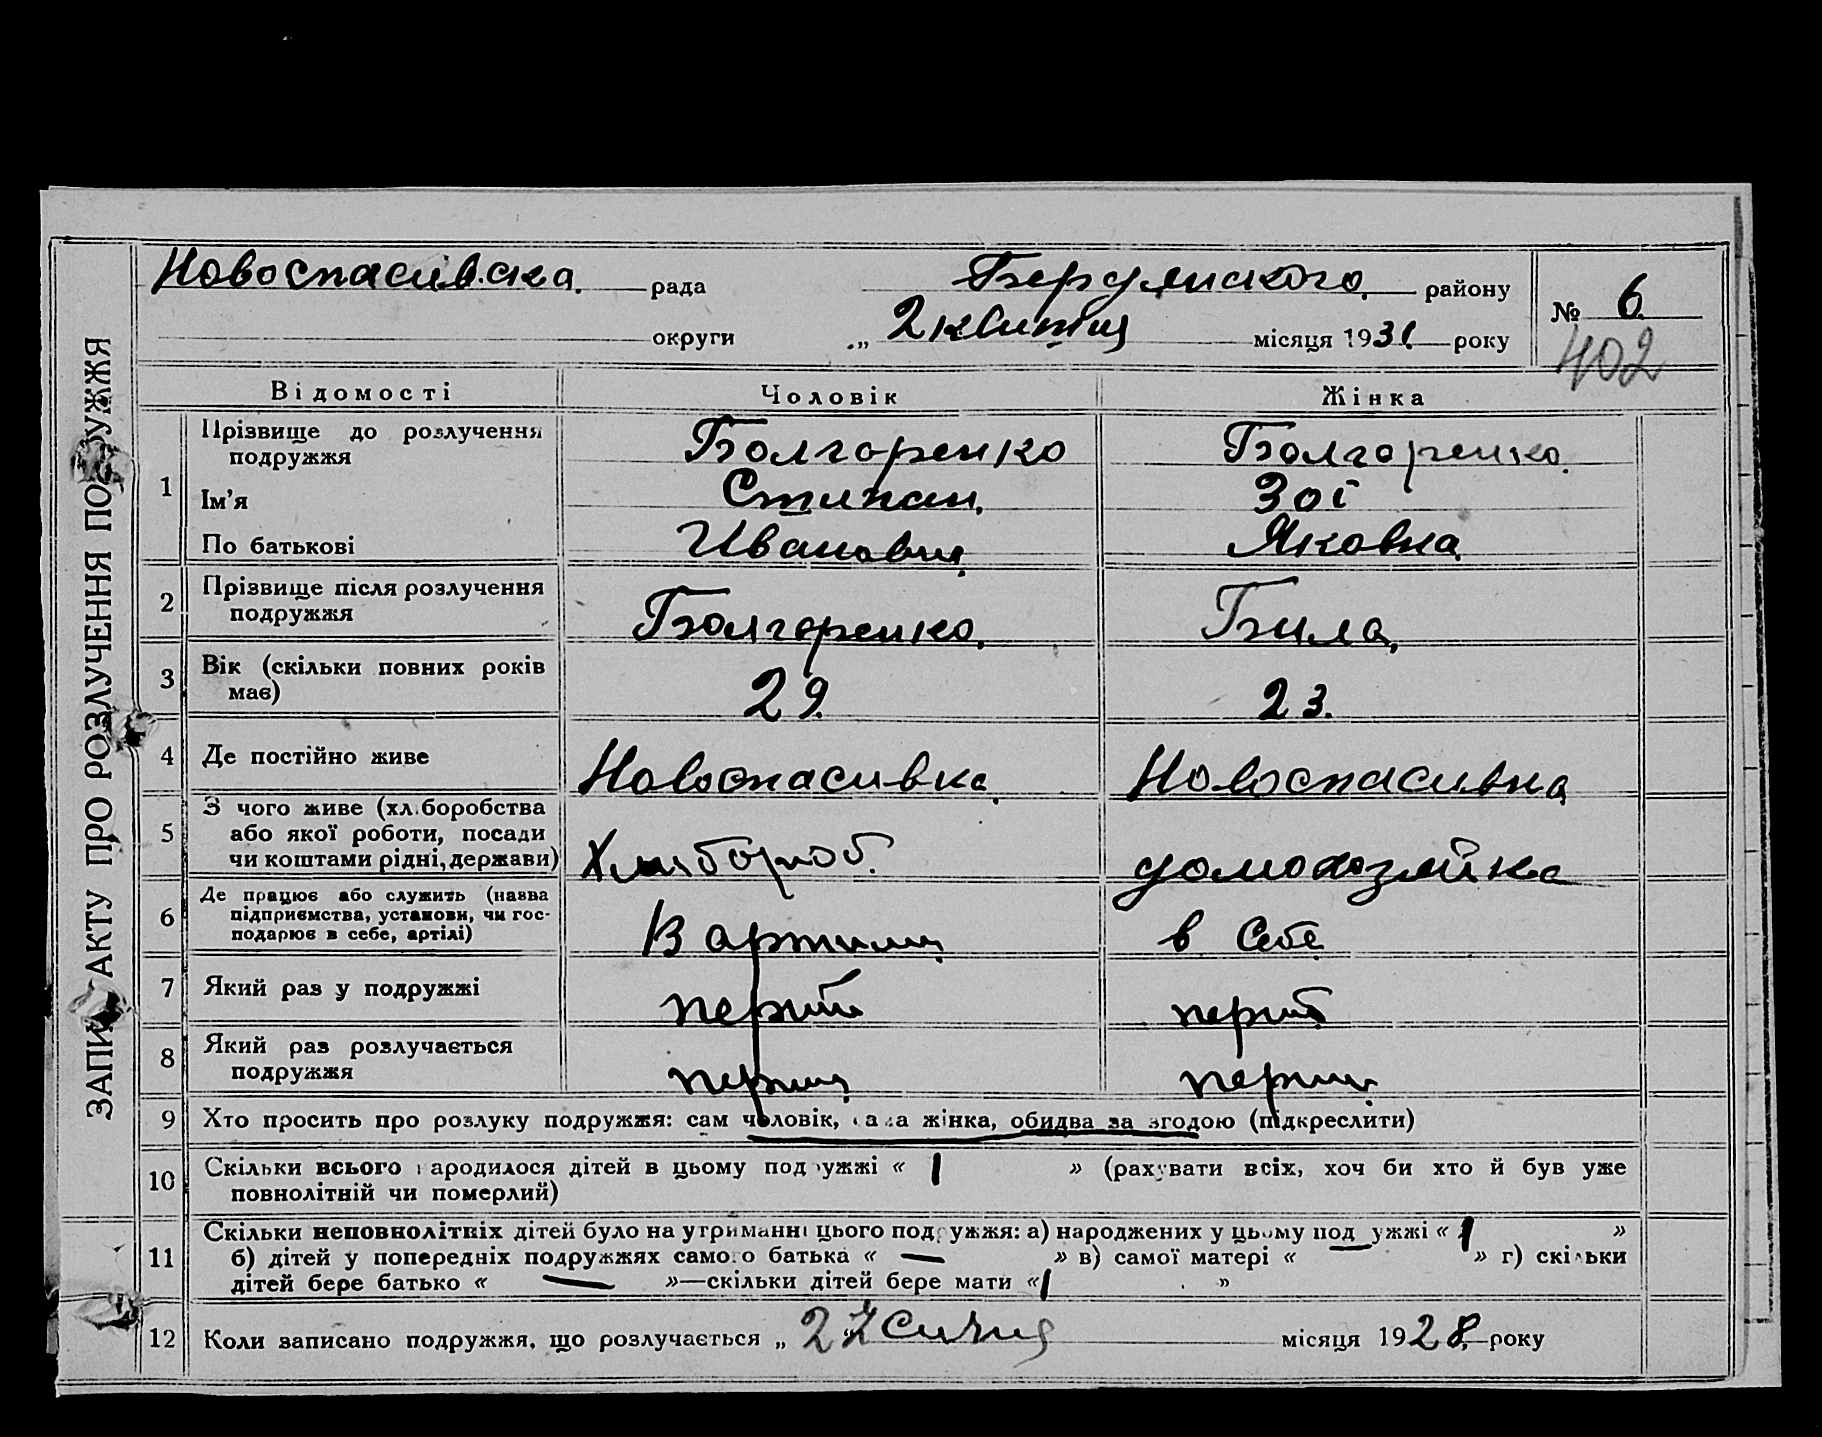 ЗАПИС АКТУ ПРО РОЗЛУЧЕННЯ ПОДРУЖЖЯ
Новоспасивска. рада Бердянского району № 6
округи „ 2 квитня місяця 1931. року 402
Відомості Чоловік Жінка
1 Прізвище до розлучення подружжя Болгоренко Болгоренко
Ім'я Стипан. Зоі
По батькові Ивановия Яковна
2 Прізвище після розлучення подружжя Болгоренко. Била,
3 Вік (скільки повних років має) 29. 23.
4 Де постійно живе Новоспасивка Новоспасивка
5 З чого живе (хліборобства або якої роботи, посади чи коштами рідні, держави) Хлибороб. домохозяйка
6 Де працює або служить (назва підприємства, установи, чи господарює в себе, артілі) В артили в Себе
7 Який раз у подружжі перший перший
8 Який раз розлучається подружжя перший перший
9 Хто просить про розлуку подружжя: сам чоловік, сама жінка, обидва за згодою (підкреслити)
10 Скільки всього народилося дітей в цьому подружжі « 1 » (рахувати всіх, хоч би хто й був уже
повнолітній чи померлий)
11 Скільки неповнолітніх дітей було на утриманні цього подружжя: а) народжених у цьому подружжі « 1 »
б) дітей у попередніх подружжях самого батька « — » в) самої матері « — » г) скільки
дітей бере батько « — »—скільки дітей бере мати « 1 »
12 Коли записано подружжя, що розлучається „ 27 Сичня місяця 1928. року